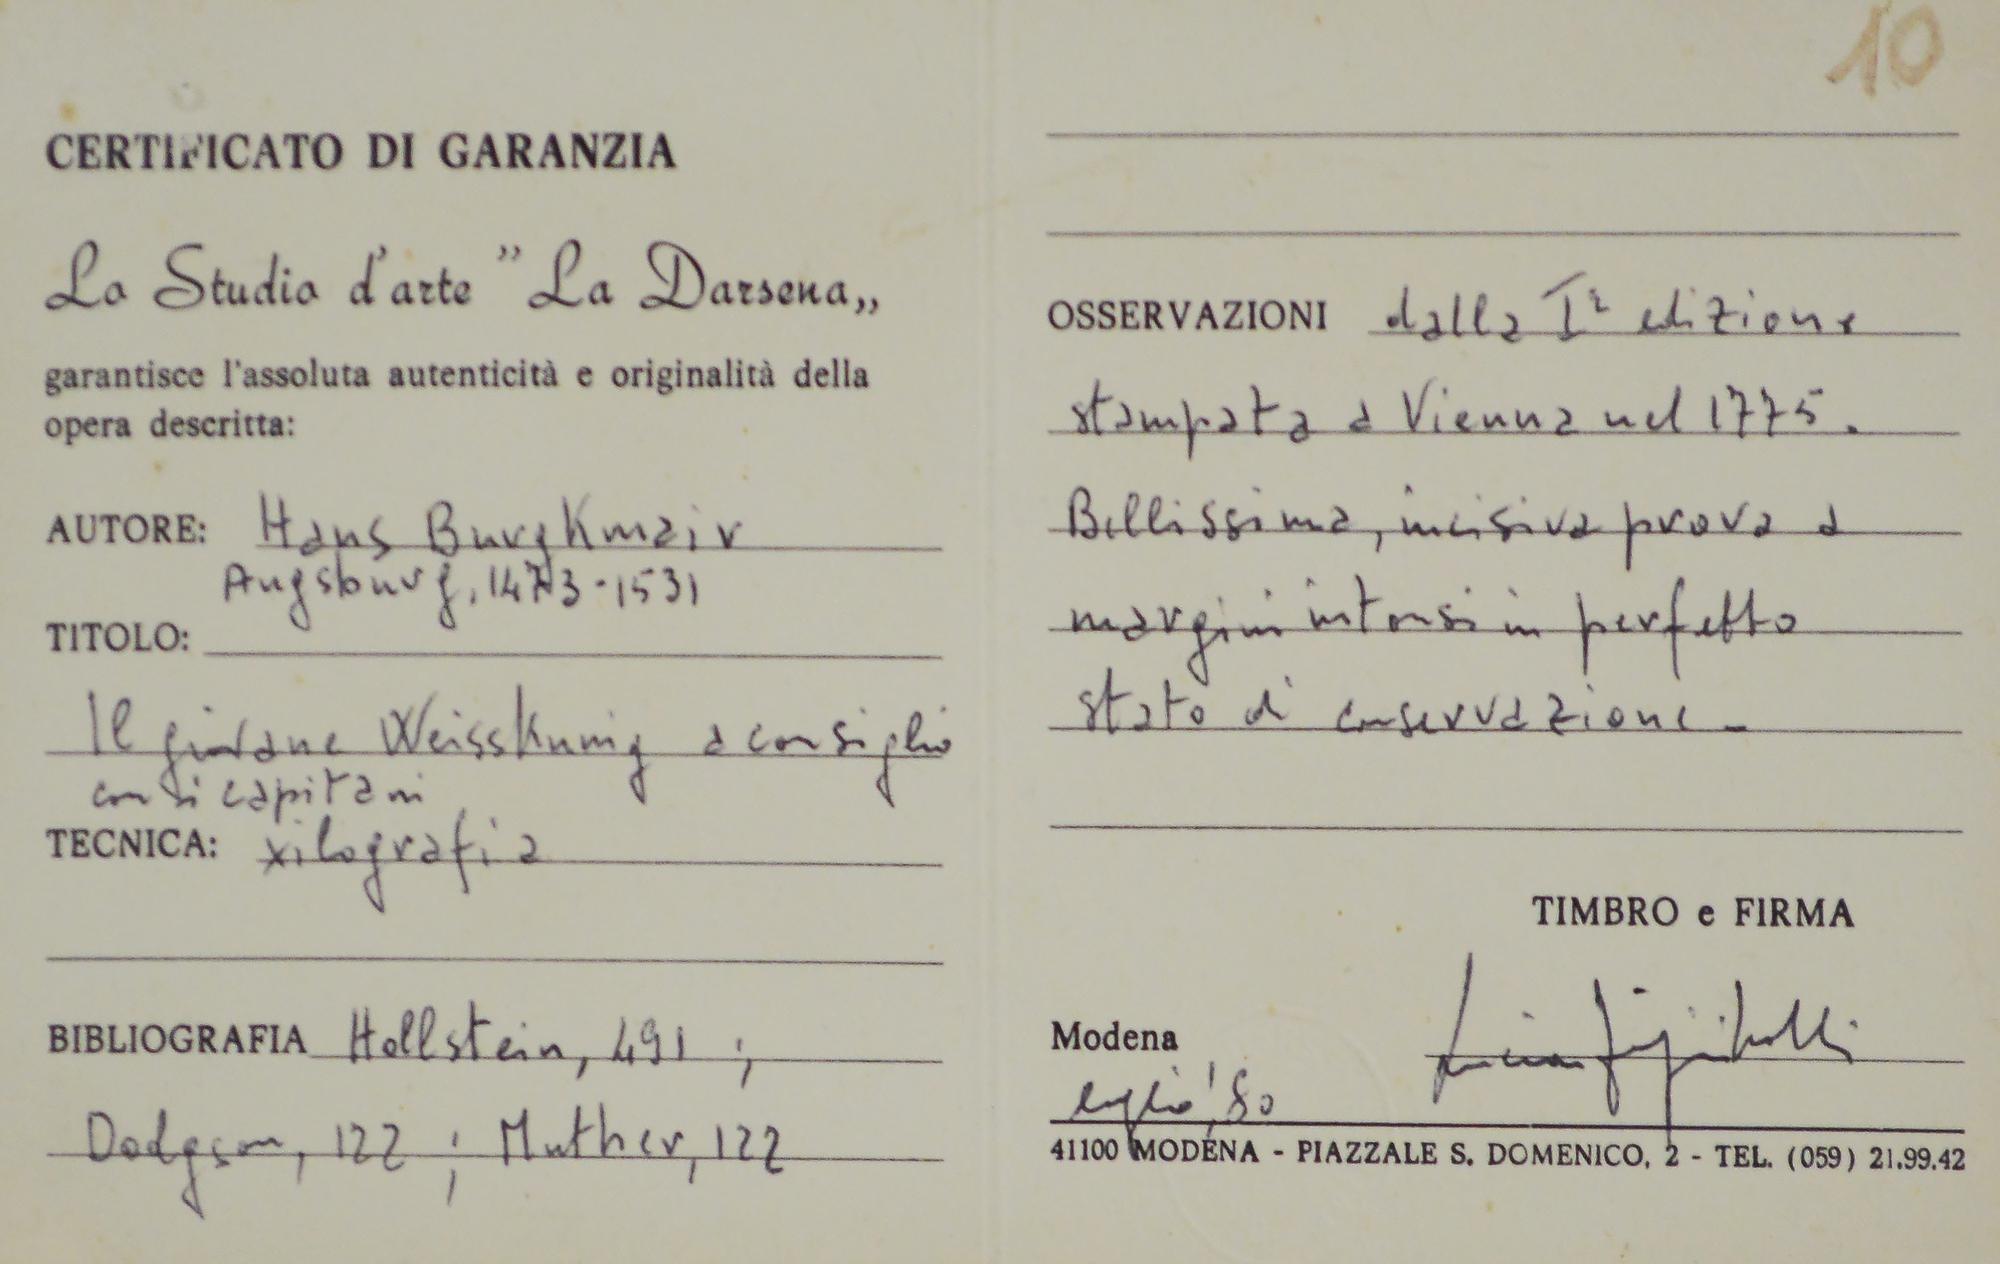 CERTIFICATO DI GARANZIA
Lo Studio d'arte "La Darsena„
garantisce l'assoluta autenticità e originalità della
opera descritta:
AUTORE: Hans Burgkmair
Augsburg, 1473-1531
TITOLO:
Il giovane Weisskunig a consiglio
con i capitani
TECNICA: xilografia
BIBLIOGRAFIA Hollstein, 491 ;
Dodgson, 122 ; Muther, 122
10
OSSERVAZIONI dalla Iª edizione
stampata a Vienna nel 1775.
Bellissima, incisiva prova a
margini intonsi in perfetto
stato di conservazione -
TIMBRO e FIRMA
Modena
luglio '80
41100 MODENA - PIAZZALE S. DOMENICO, 2 - TEL. (059) 21.99.42